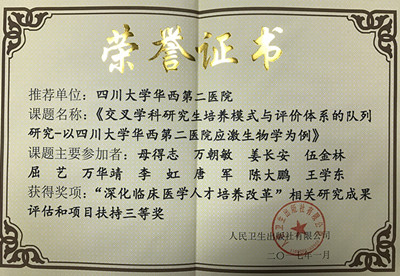 荣誉证书
推荐单位：四川大学华西第二医院
课题名称：《交叉学科研究生培养模式与评价体系的队列
研究-以四川大学华西第二医院应激生物学为例》
课题主要参加者：母得志 万朝敏 姜长安 伍金林
屈艺 万华靖 李虹 唐军 陈大鹏 王学东
获得奖项：“深化临床医学人才培养改革”相关研究成果
评估和项目扶持三等奖
人民卫生出版社有限公司
二〇一七年一月